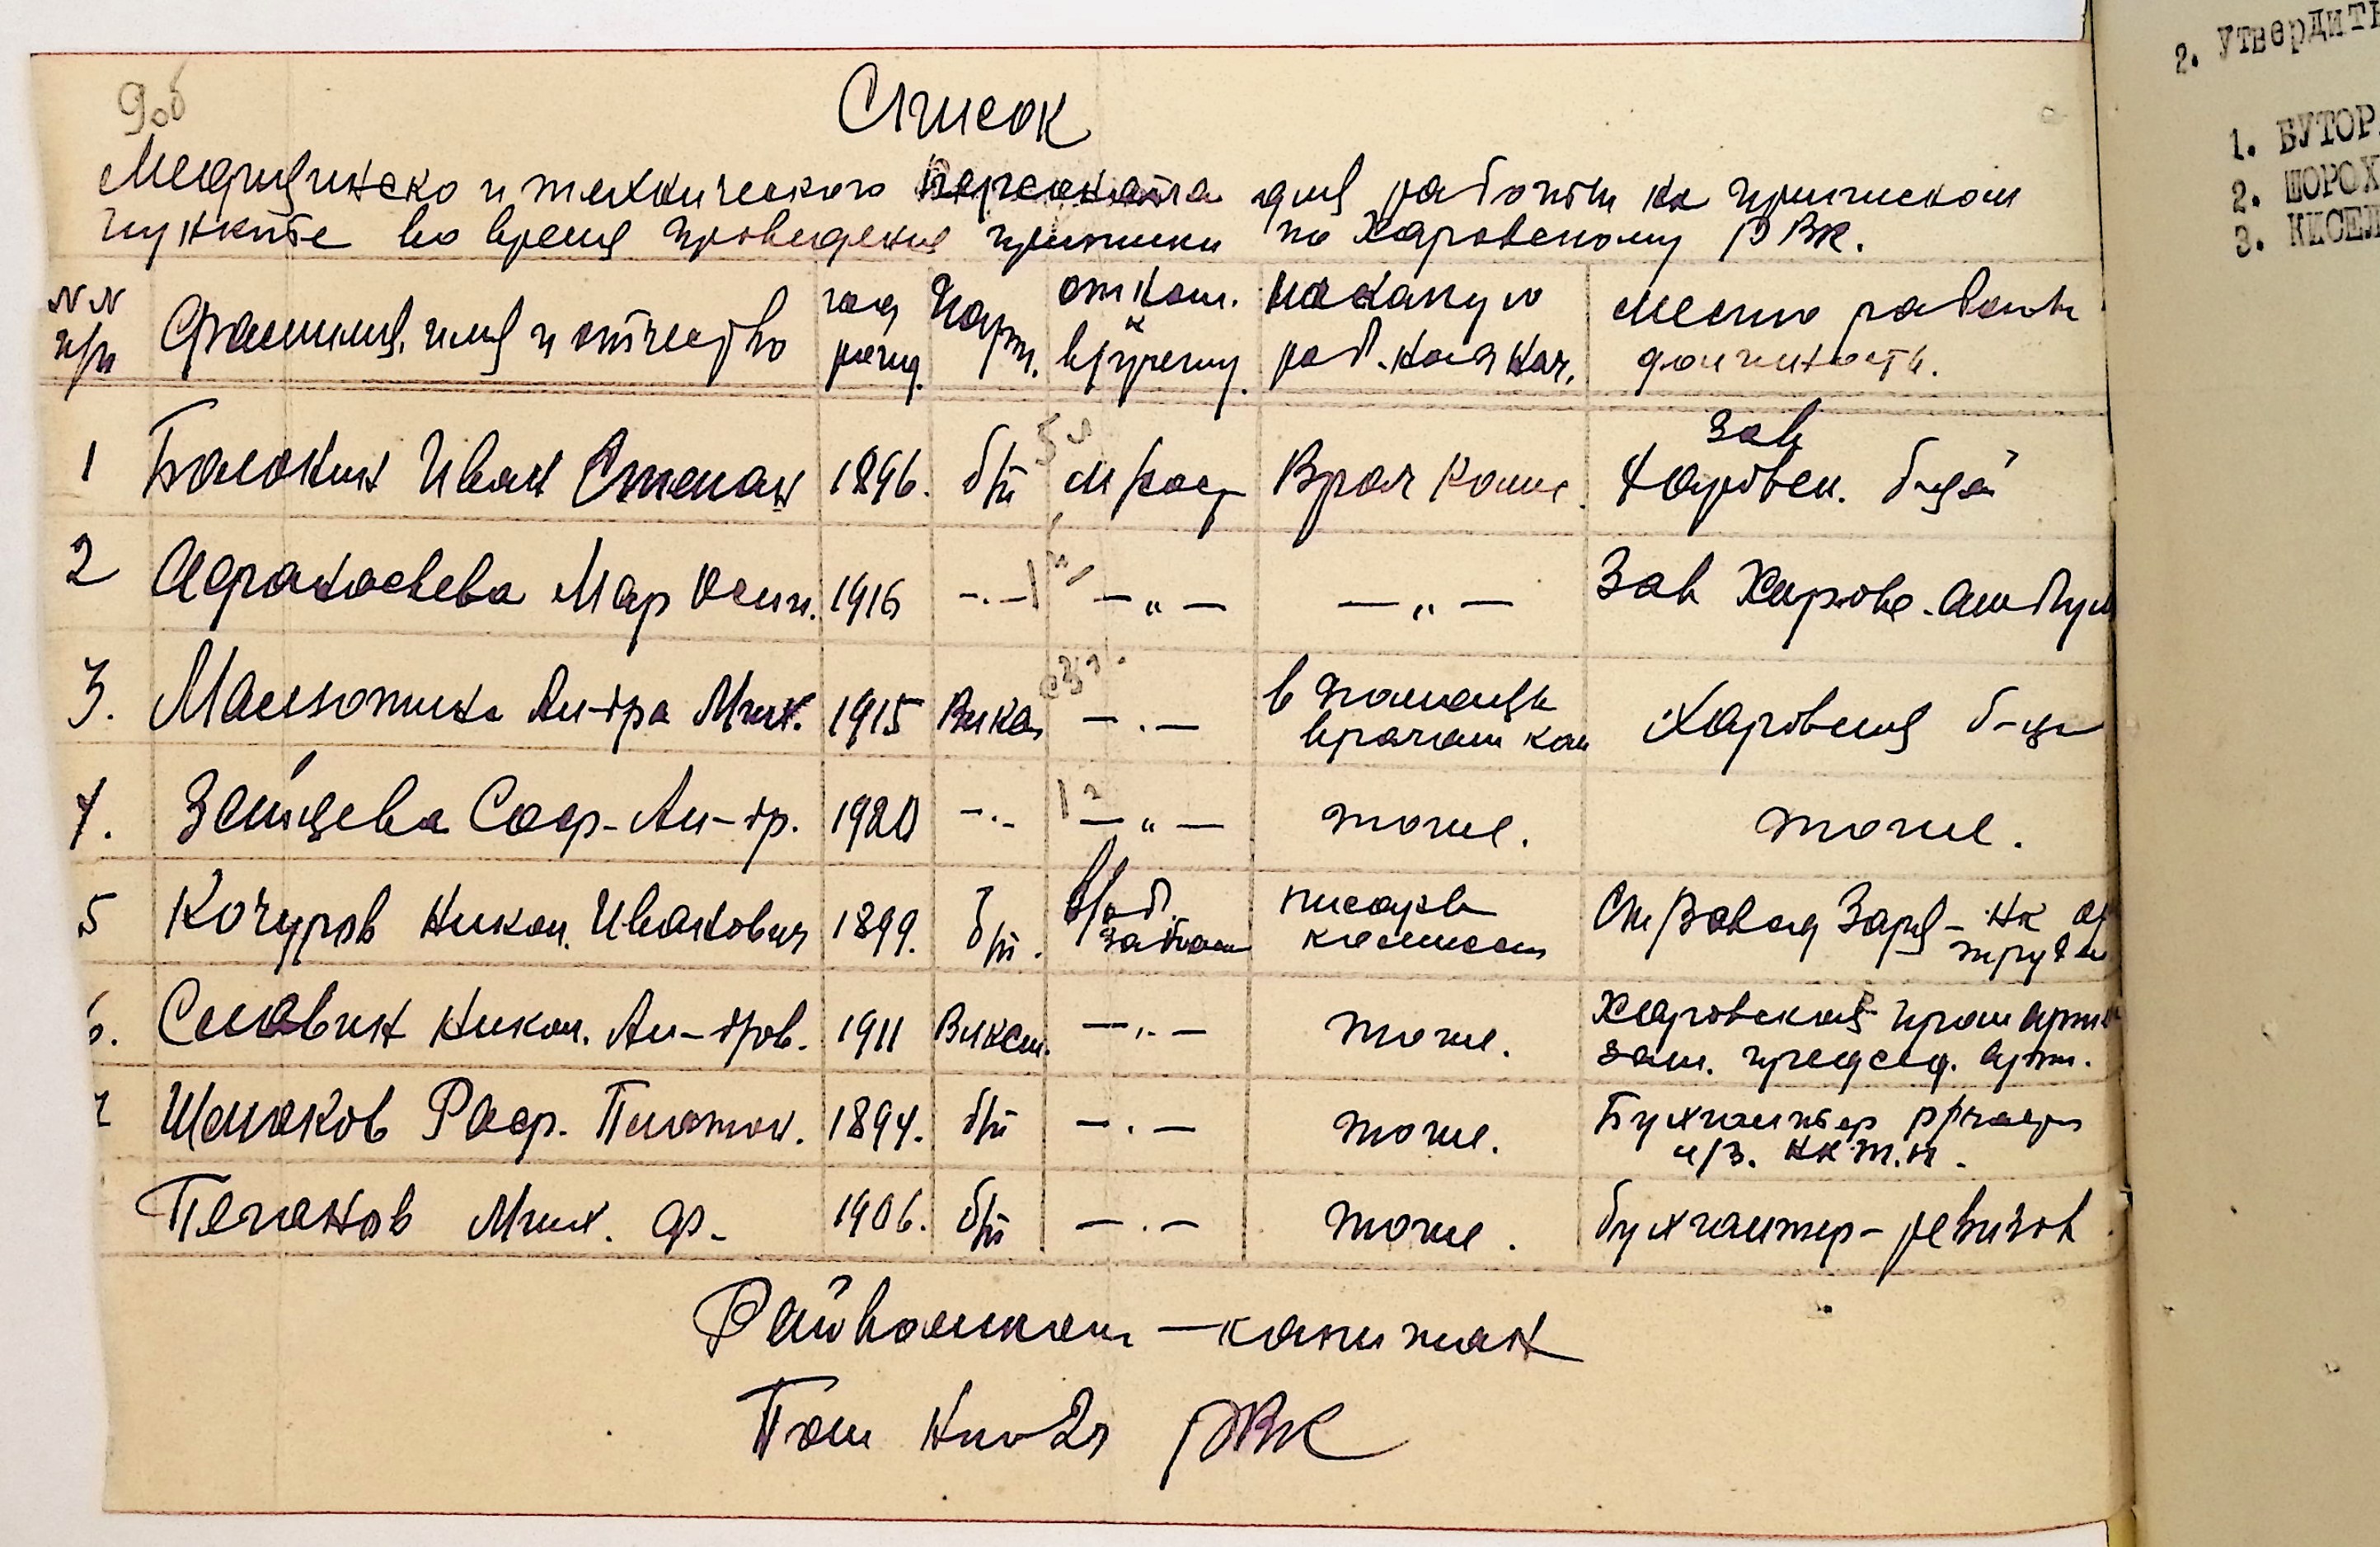 9об
Список
Медицинско и технического персонала для работы на приписном
пункте во время проведение приписки по Харовскому РВК.
NN п/п Фамилия, имя и отчество год рожд. Парт. отнош. к в/учету. на какую раб. назнач. место работы должность.
1 Балокин Иван Степан 1896. б/п Врач комис. Зав Харовск. б-цой
2 Афанасьева Мар Осип. 1916 -.- -„- -„- Зав Харовс. амбул
3. Мамзотина Ал-дра Мих. 1915 -.- в помощь врачам ком Харовская б-ца
4. Зайцева Соф- Ал-др. 1920 -.- -„- тоже. тоже.
5 Кочуров Никол. Иванович 1899. б/п. писарь комиссии
6. Славин Никол. Ал-дров. 1911 -„- тоже. Харовская пром арт зам. председ. арт.
7 Шешаков Раф. Платон. 1894. б/п -.- тоже. Бухгалтер
Паганов Мих. Ф. 1906. б/п -.- тоже. бухгалтер-ревизов
Райвоенком - капитан
Пом Нш 2ч РВК
2. Утвердить
1. БУТОР
2. ШОРОХ
3. КИСЕЛ